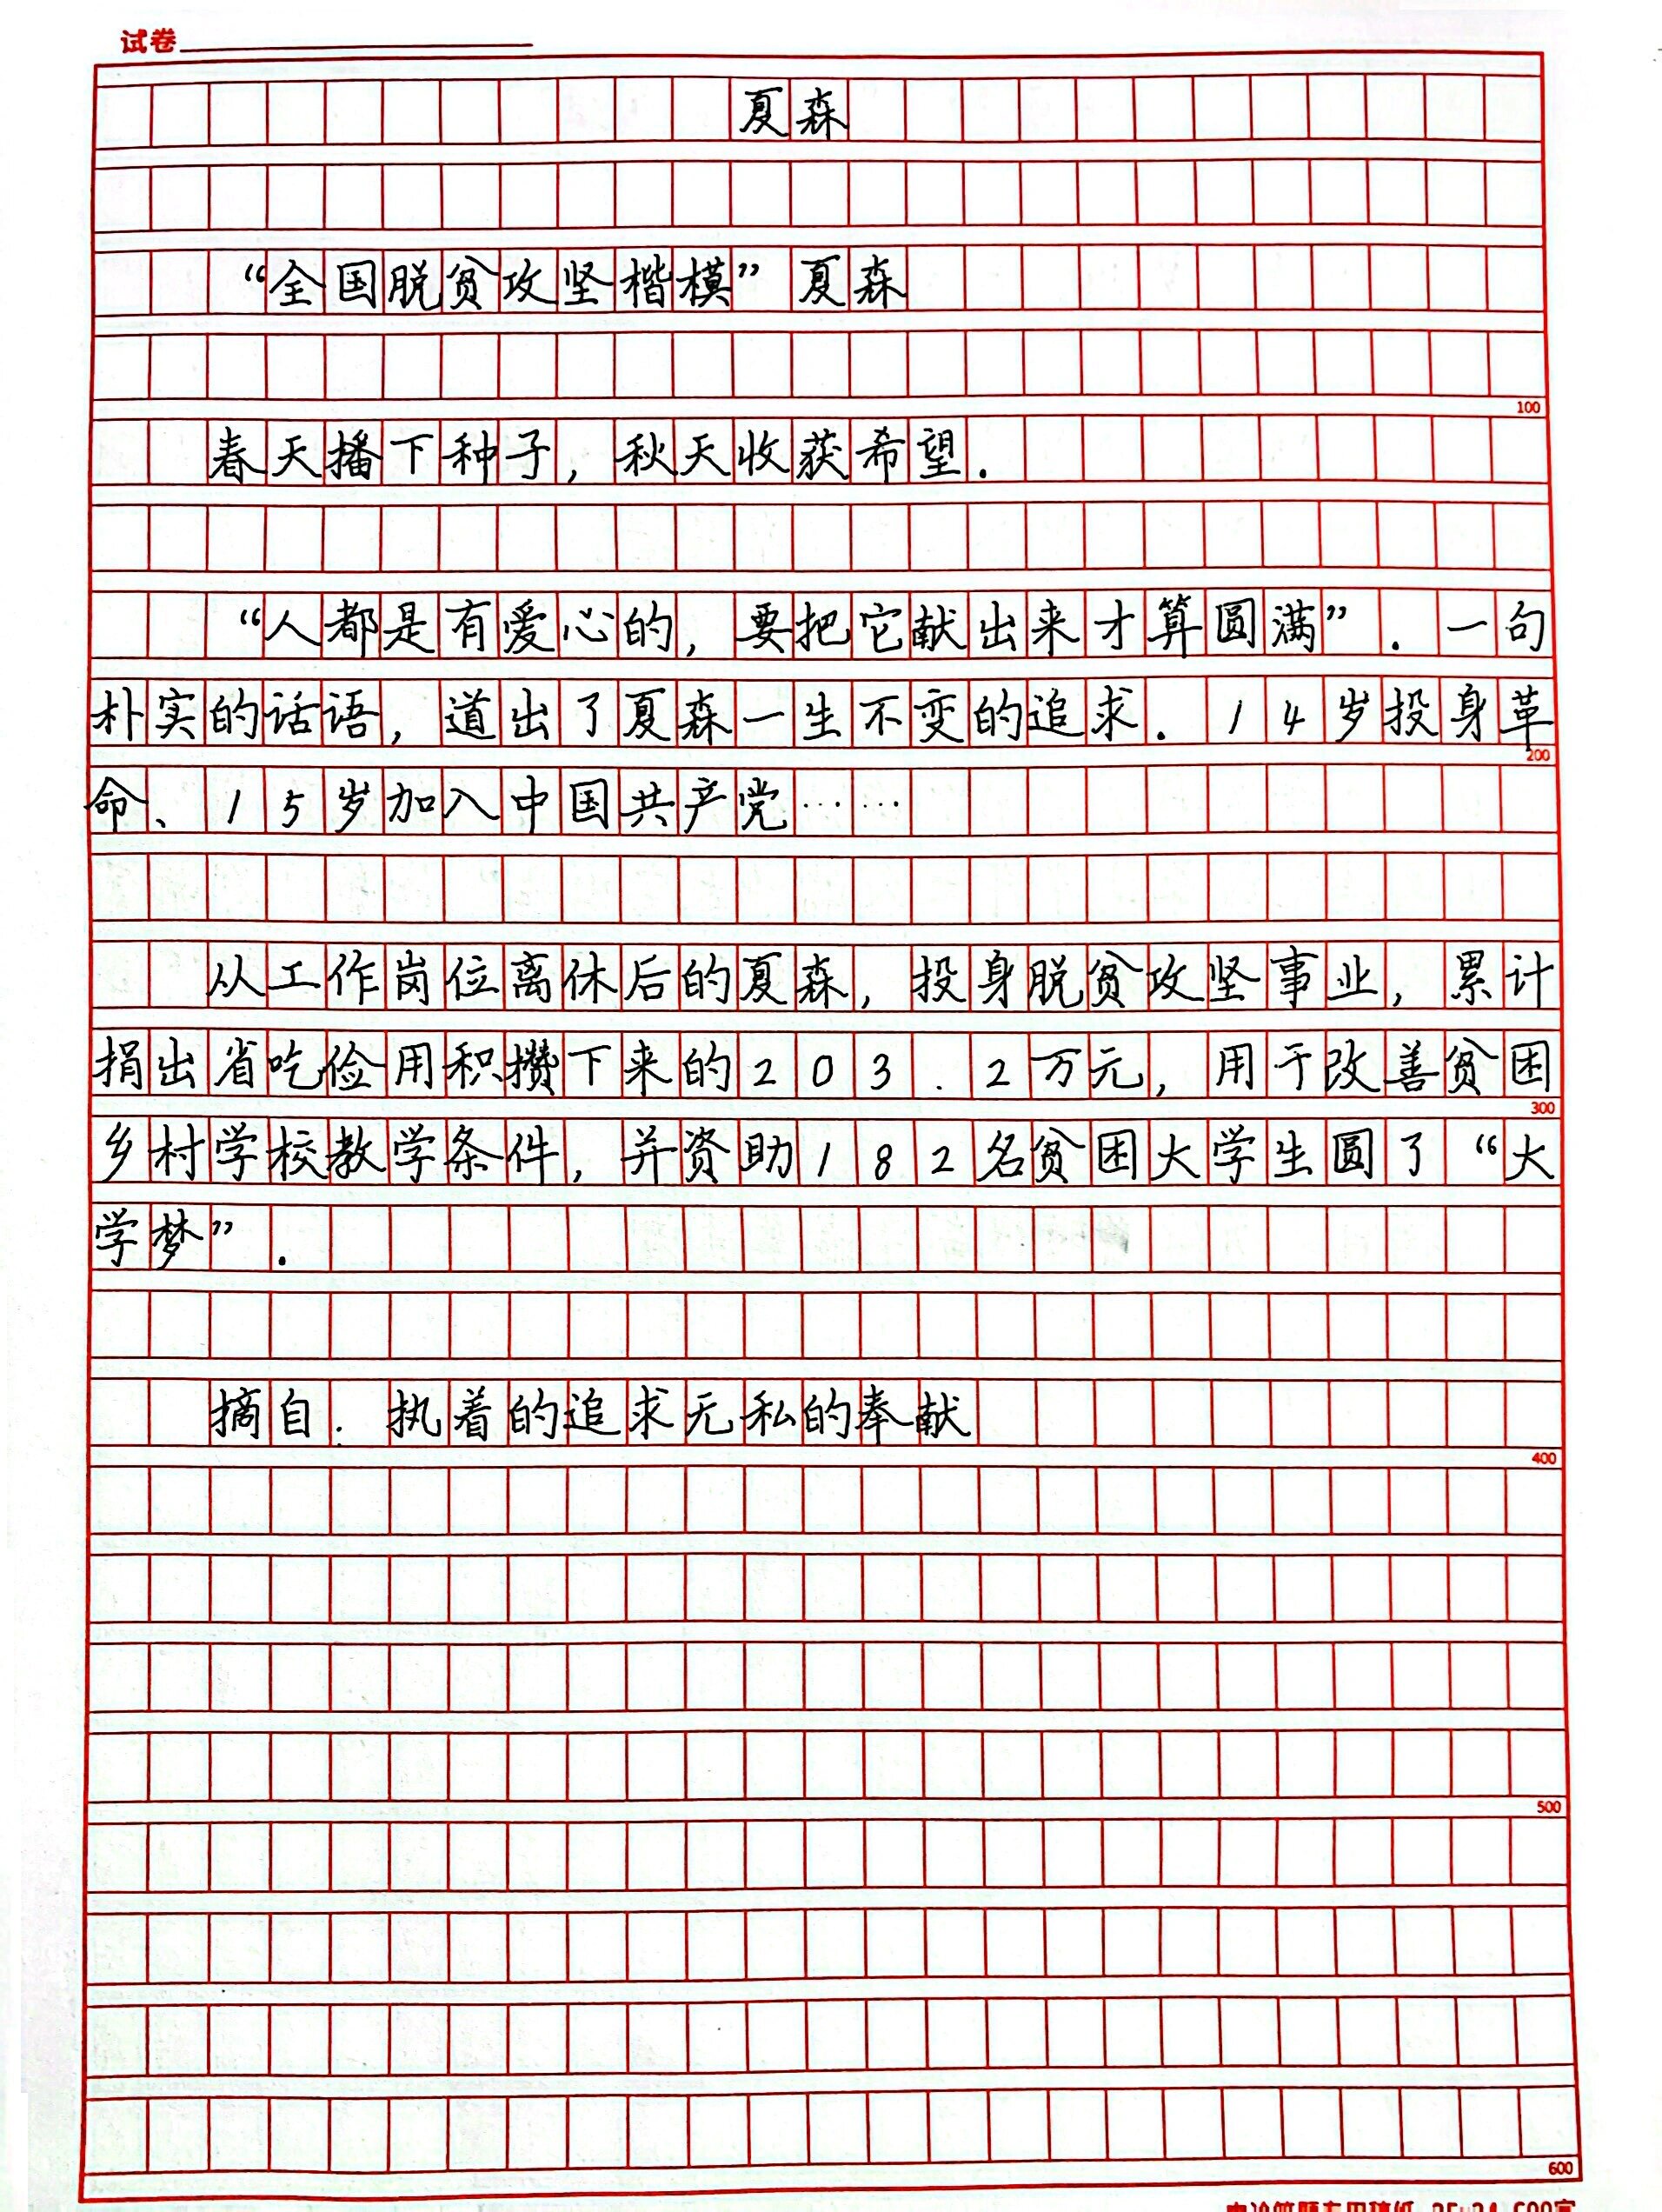 试卷
夏森
“全国脱贫攻坚楷模”夏森
100
春天播下种子,秋天收获希望.
“人都是有爱心的,要把它献出来才算圆满”.一句
朴实的话语,道出了夏森一生不变的追求.14岁投身革
200
命、15岁加入中国共产党……
从工作岗位离休后的夏森,投身脱贫攻坚事业,累计
捐出省吃俭用积攒下来的203.2万元,用于改善贫困
300
乡村学校教学条件,并资助182名贫困大学生圆了“大
学梦”.
摘自:执着的追求无私的奉献
400
500
600